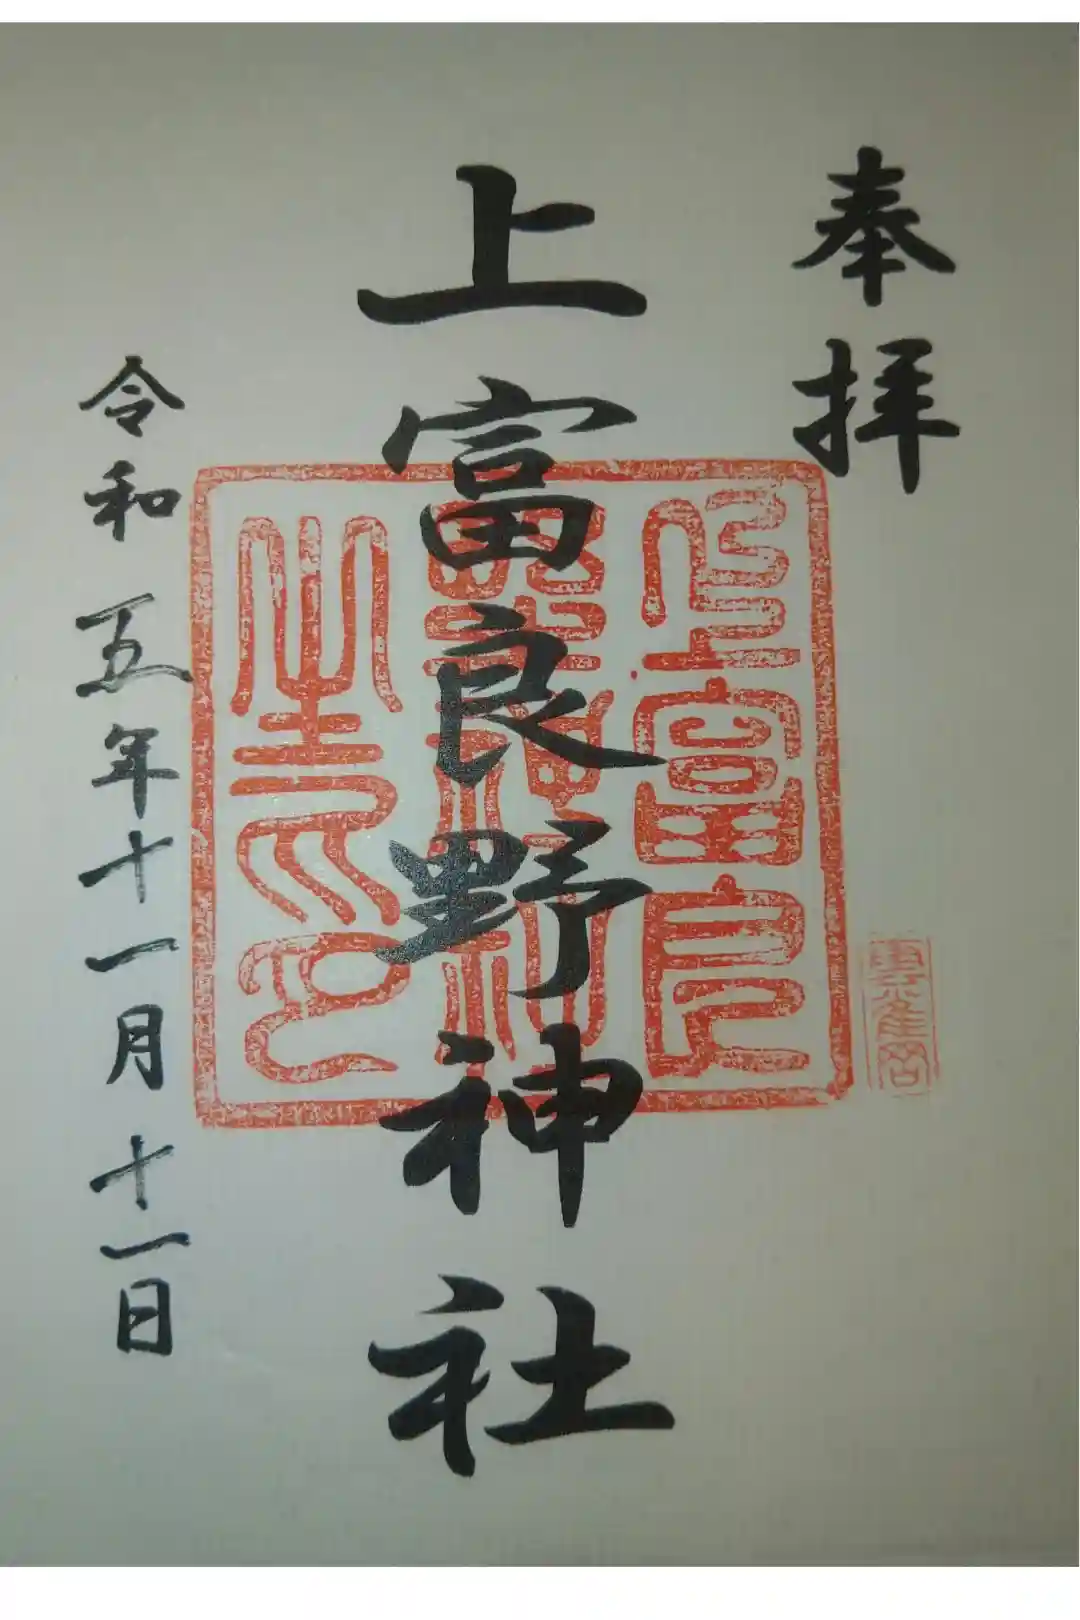 奉拝
上富良野神社
令和五年十一月十一日
上富良
野神社
之印